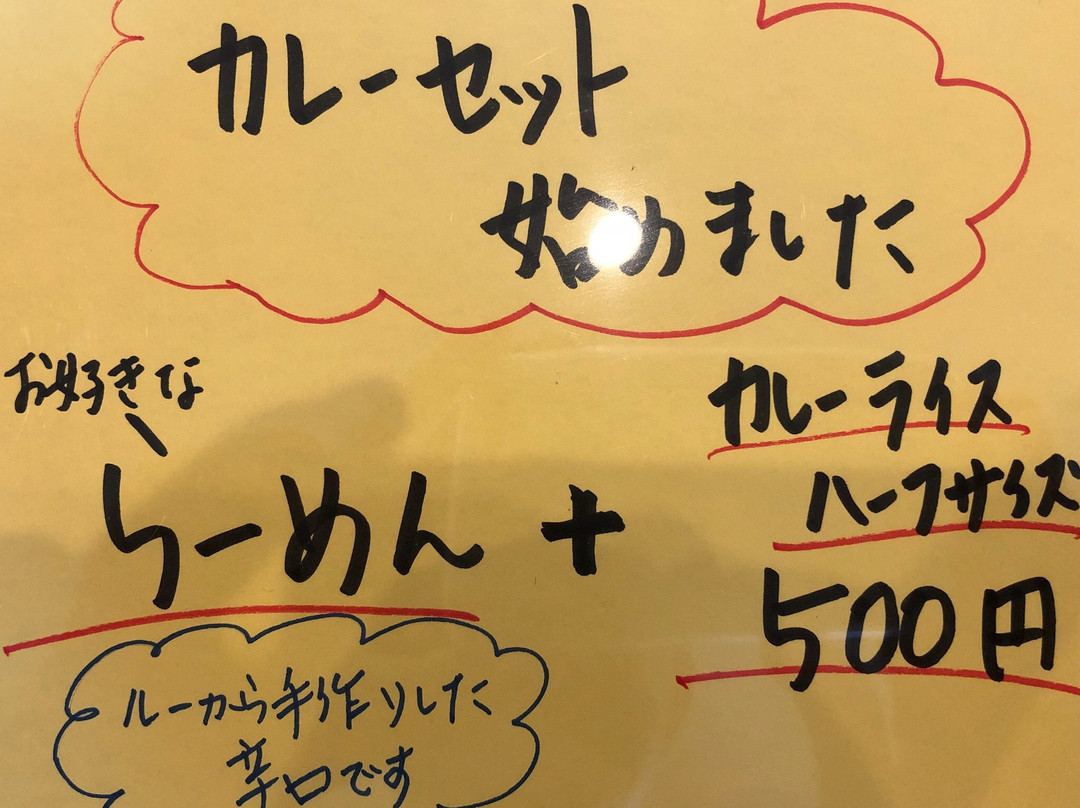 カレーセット
始めました
お好きな
らーめん +
カレーライス
ハーフサイズ
500円
ルーから手作りした
辛口です